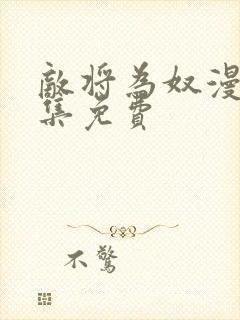 敵將為奴漫
集免費
不驚